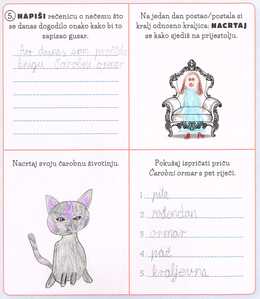 5. NAPIŠI rečenicu o nečemu što
se danas dogodilo onako kako bi to
zapisao gusar.
danas sam
knjigu Čarobni ormar
Na jedan dan postao/postala si
kralj odnosno kraljica. NACRTAJ
se kako sjediš na prijestolju.
Nacrtaj svoju čarobnu životinju.
Pokušaj ispričati priču
Čarobni ormar s pet riječi.
1.
2. rođendan
3. ormar
4.
5. kraljevna